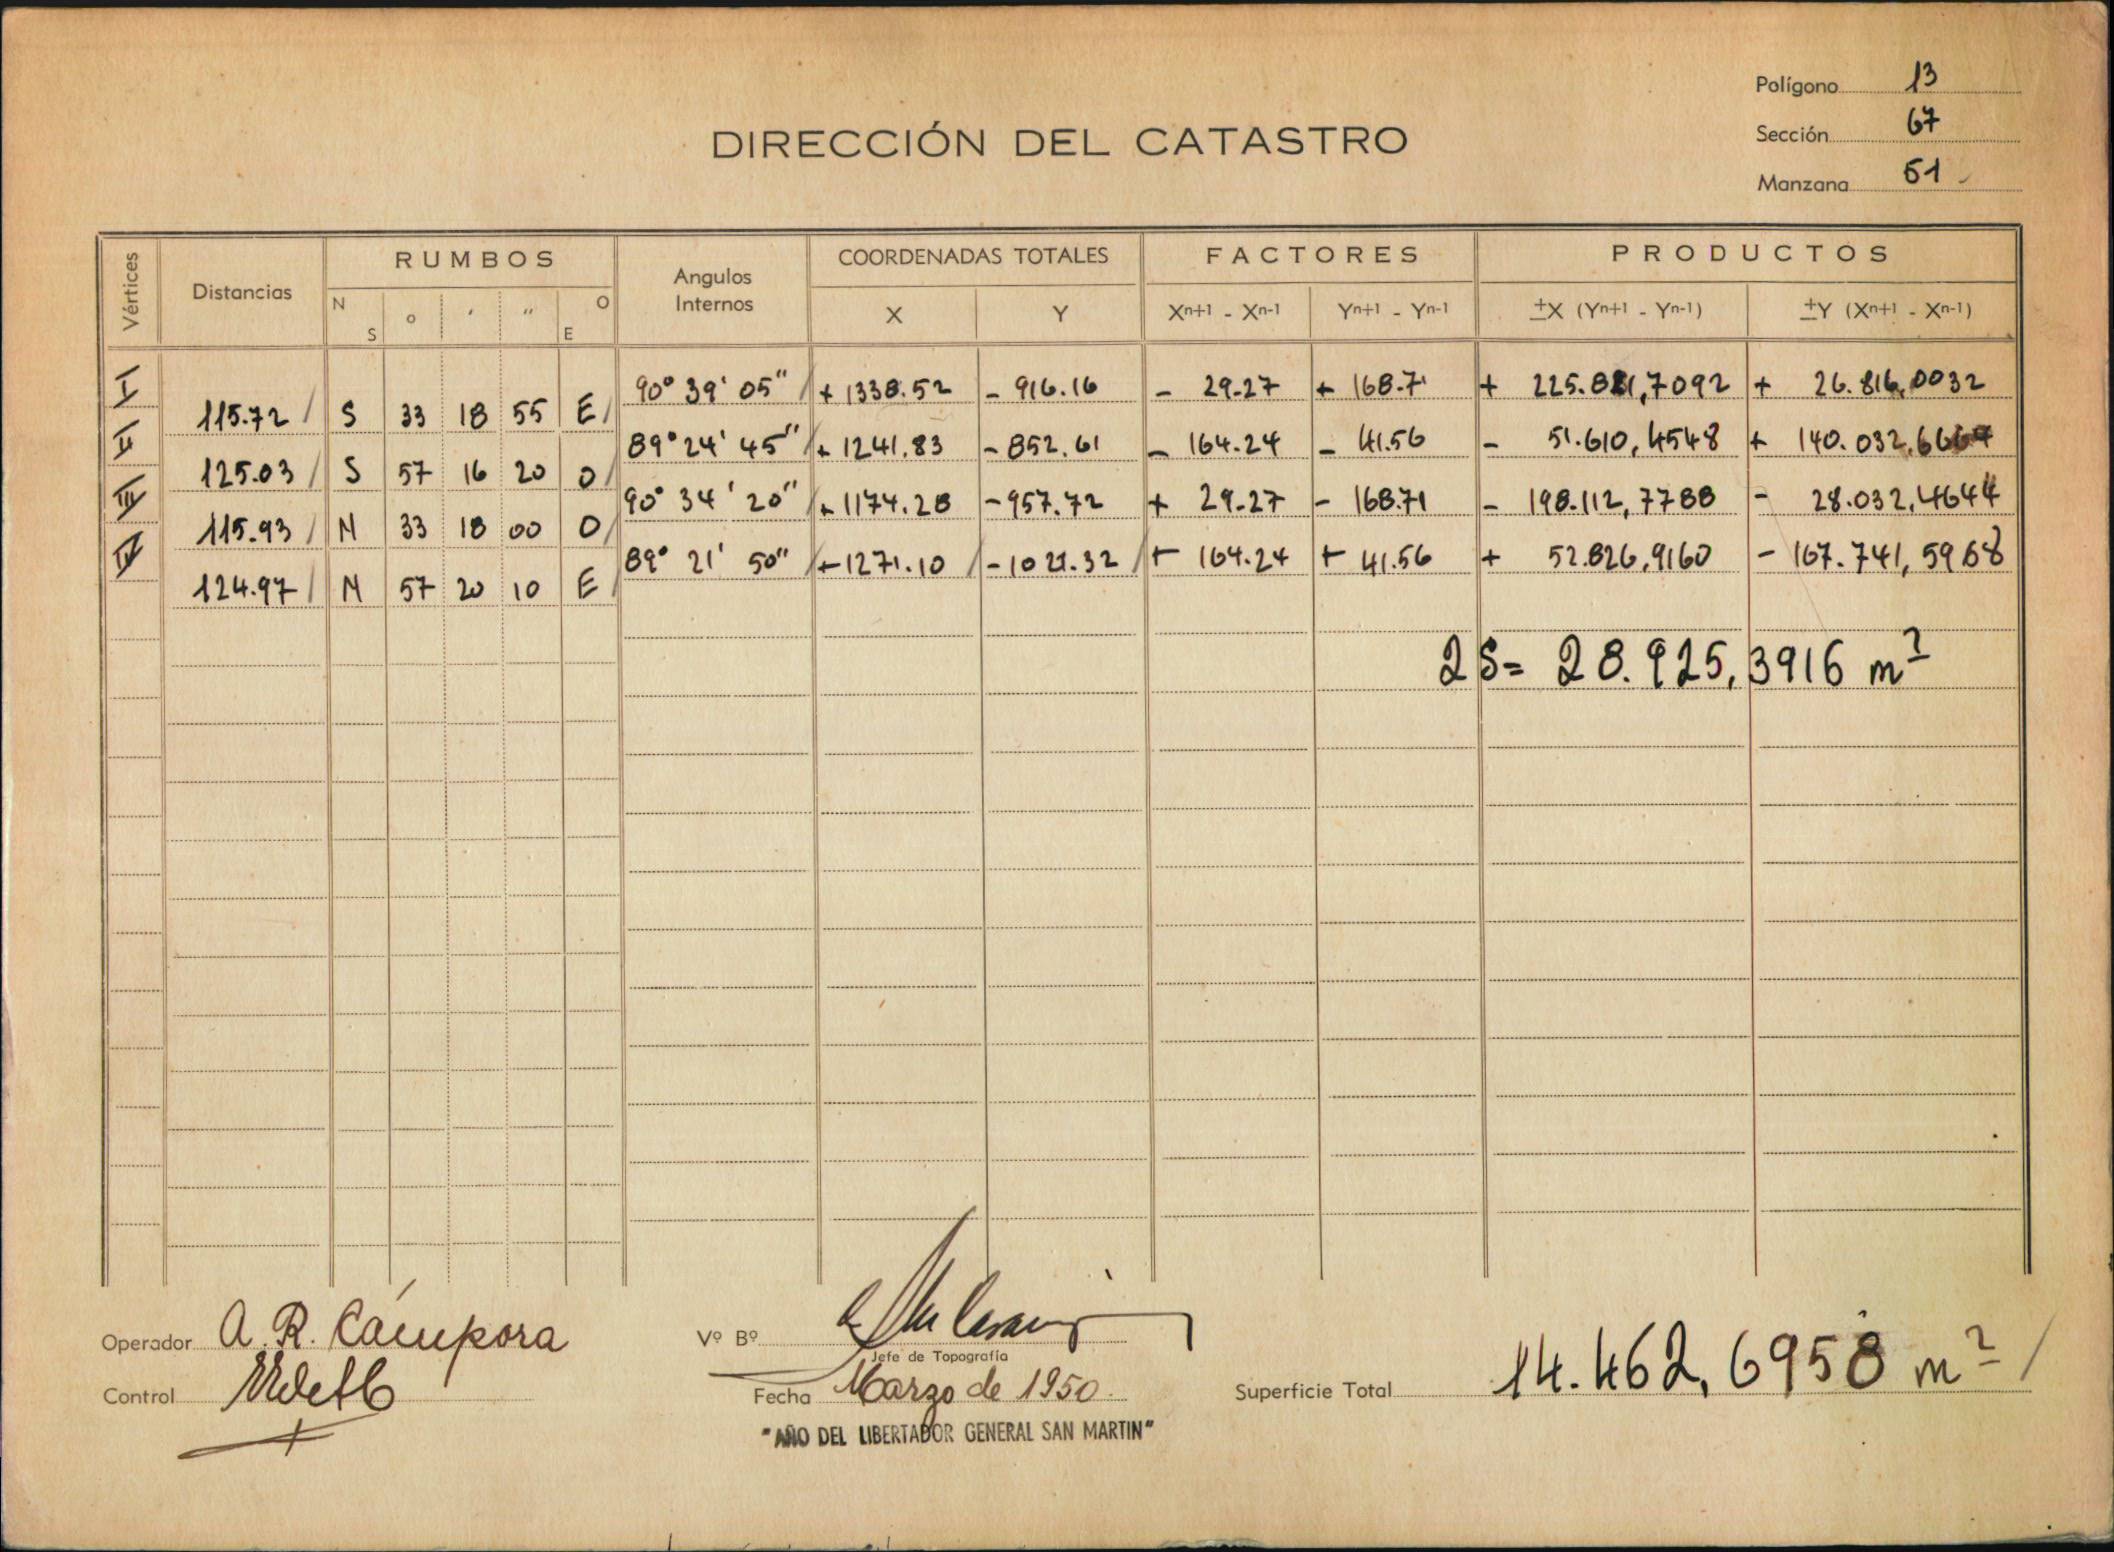 Polígono 13
Sección 67
Manzana 51
DIRECCIÓN DEL CATASTRO
Vértices Distancias RUMBOS Angulos Internos COORDENADAS TOTALES FACTORES PRODUCTOS
N S o ' '' O E X Y Xn+1 - Xn-1 Yn+1 - Yn-1 ±X (Yn+1 - Yn-1) ±Y (Xn+1 - Xn-1)
I 90° 39' 05" + 1338.52 - 916.16 - 29.27 + 168.71 + 225.821,7092 + 26.816,0032
115.72 S 33 18 55 E
II 89° 24' 45" + 1241.83 - 852.61 - 164.24 - 41.56 - 51.610,4548 + 140.032,6664
125.03 S 57 16 20 O
III 90° 34' 20" + 1174.28 - 957.72 + 29.27 - 168.71 - 198.112,7788 - 28.032,4644
115.93 N 33 18 00 O
IV 89° 21' 50" + 1271.10 - 1021.32 + 164.24 + 41.56 + 52.826,9160 - 167.741,5968
124.97 N 57 20 10 E
2S= 28.925,3916 m²
Operador A. R. Cámpora
Vº Bº
Jefe de Topografía
Control
Fecha Marzo de 1950.
Superficie Total 14.462,6958 m²
"AÑO DEL LIBERTADOR GENERAL SAN MARTIN"